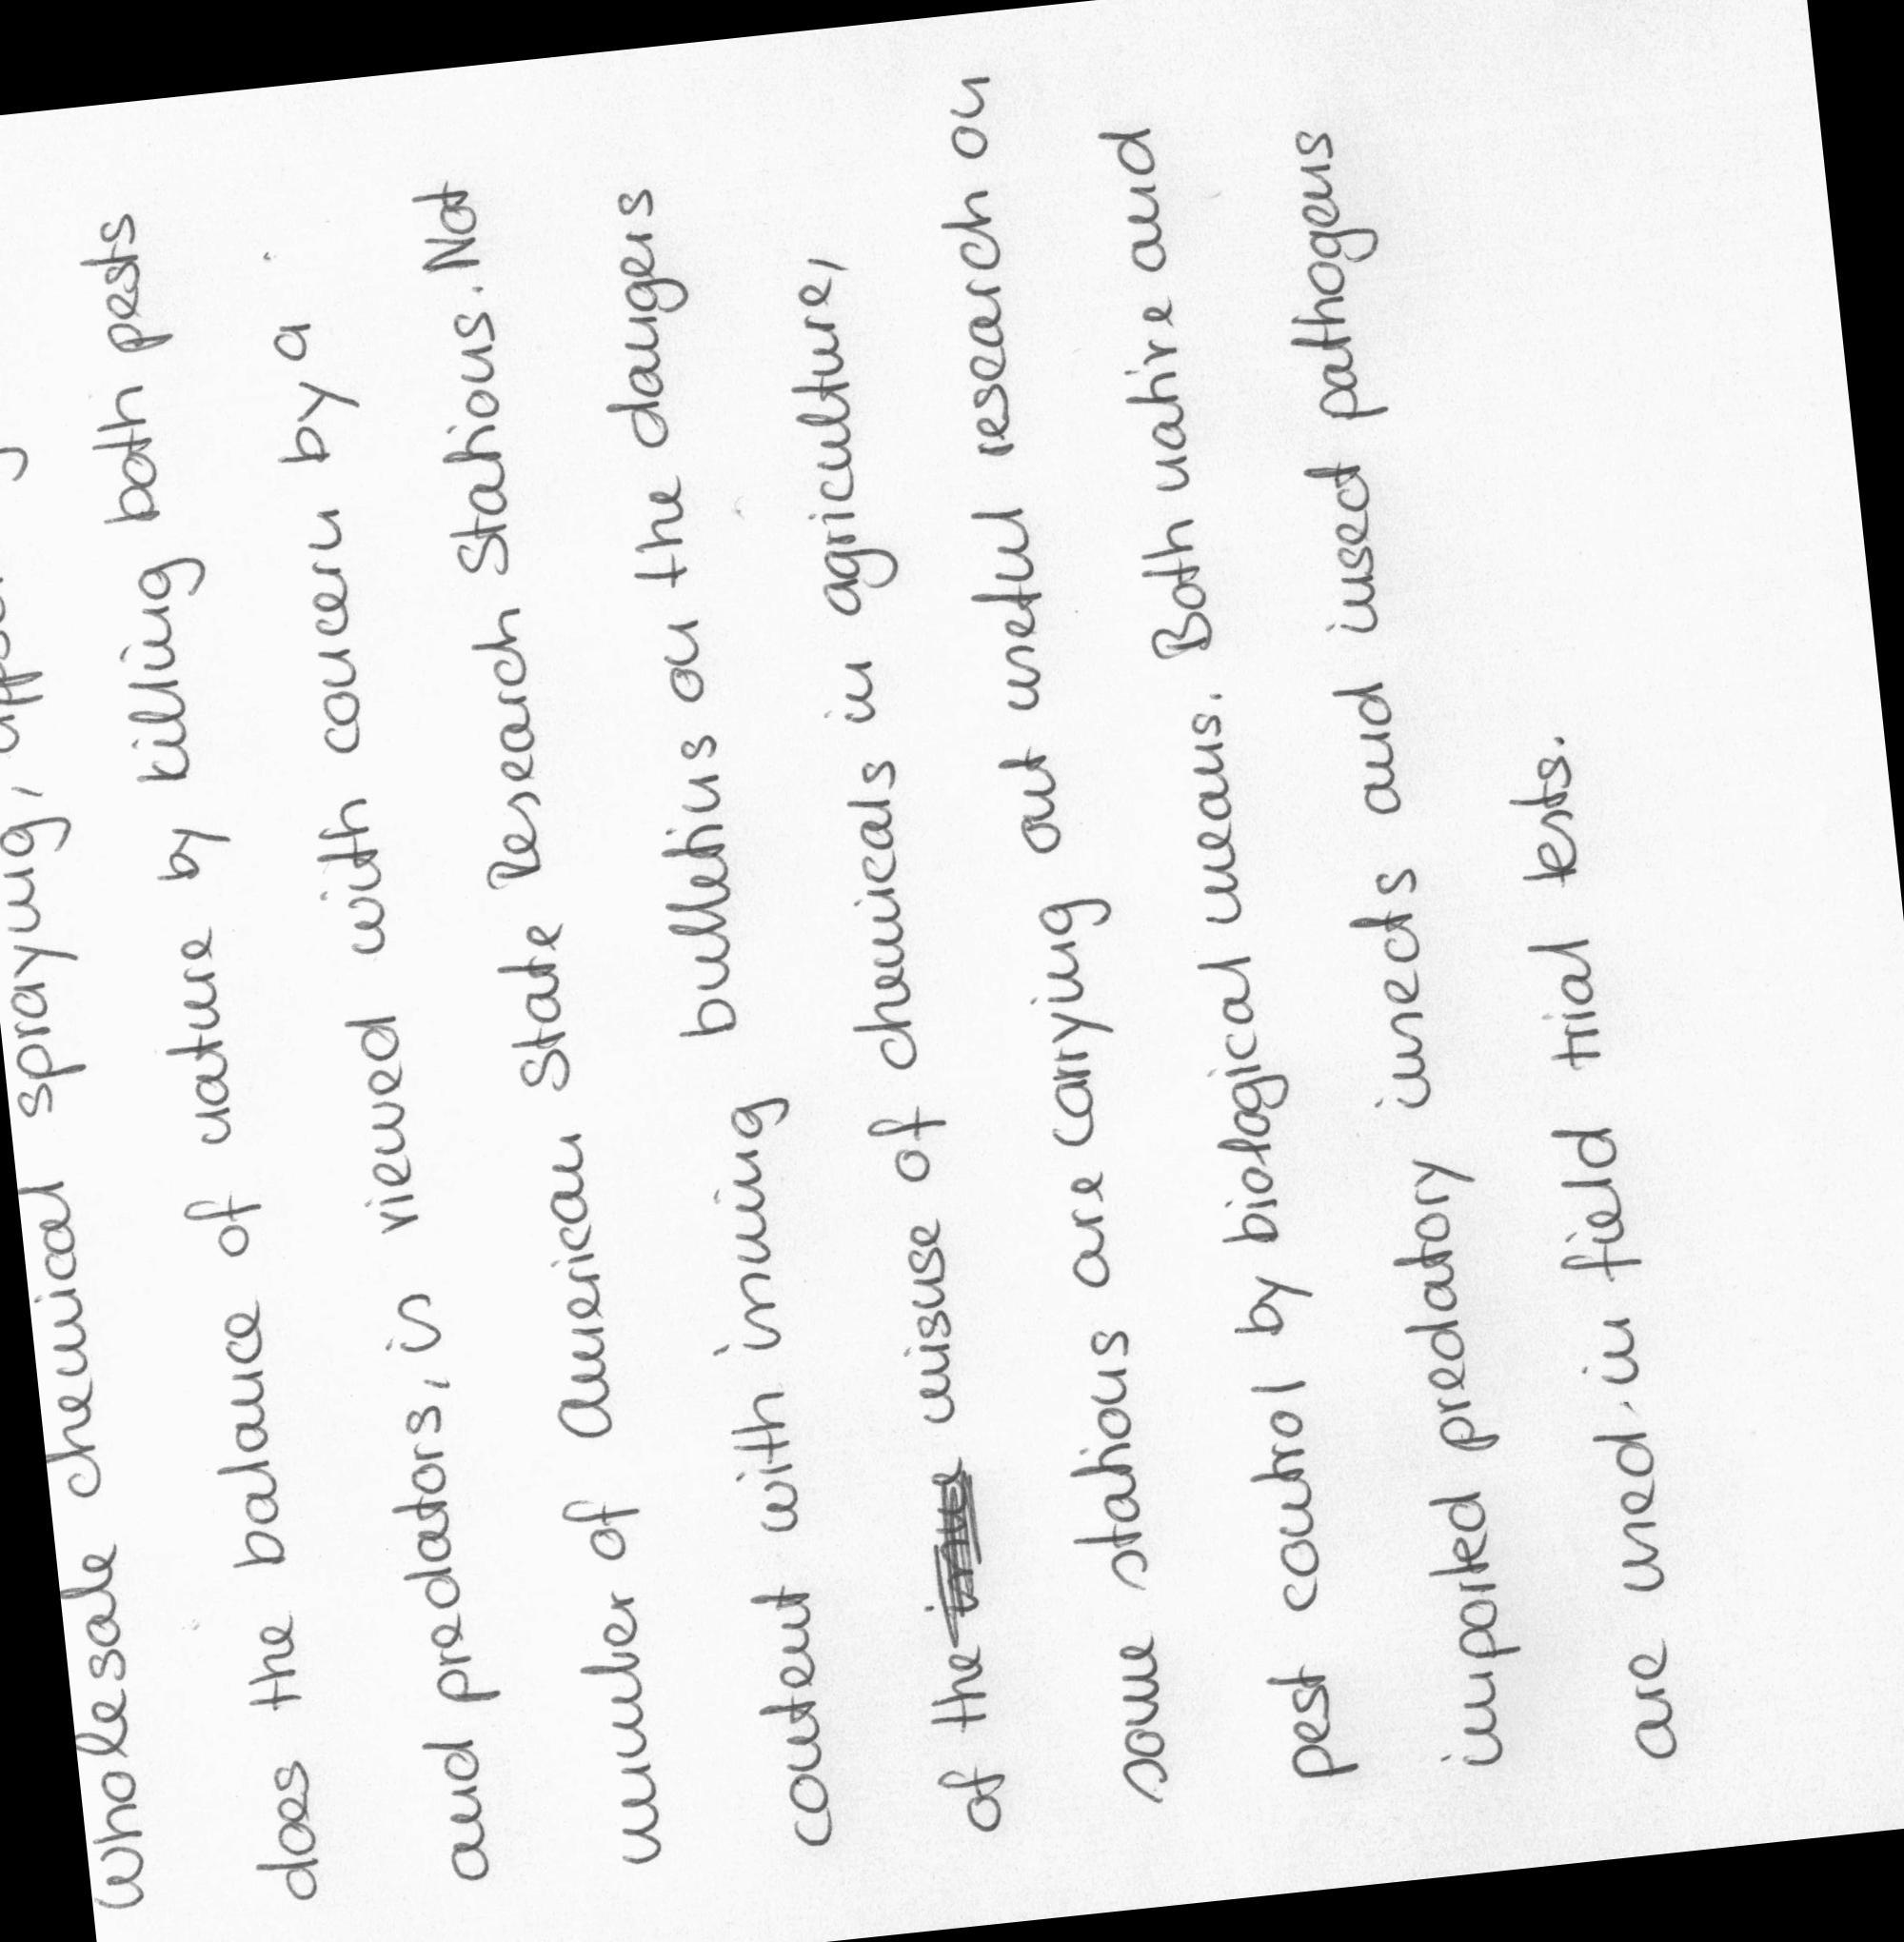 Wholesale chemical spraying,
does the balance of nature by killing both pests
and predators, is viewed with concern by a
number of American State Research Stations. Not
content with issuing bulletins on the dangers
of the misuse of chemicals in agriculture,
some stations are carrying out useful research on
pest control by biological means. Both native and
imported predatory insects and insect pathogens
are used. in field trial tests.